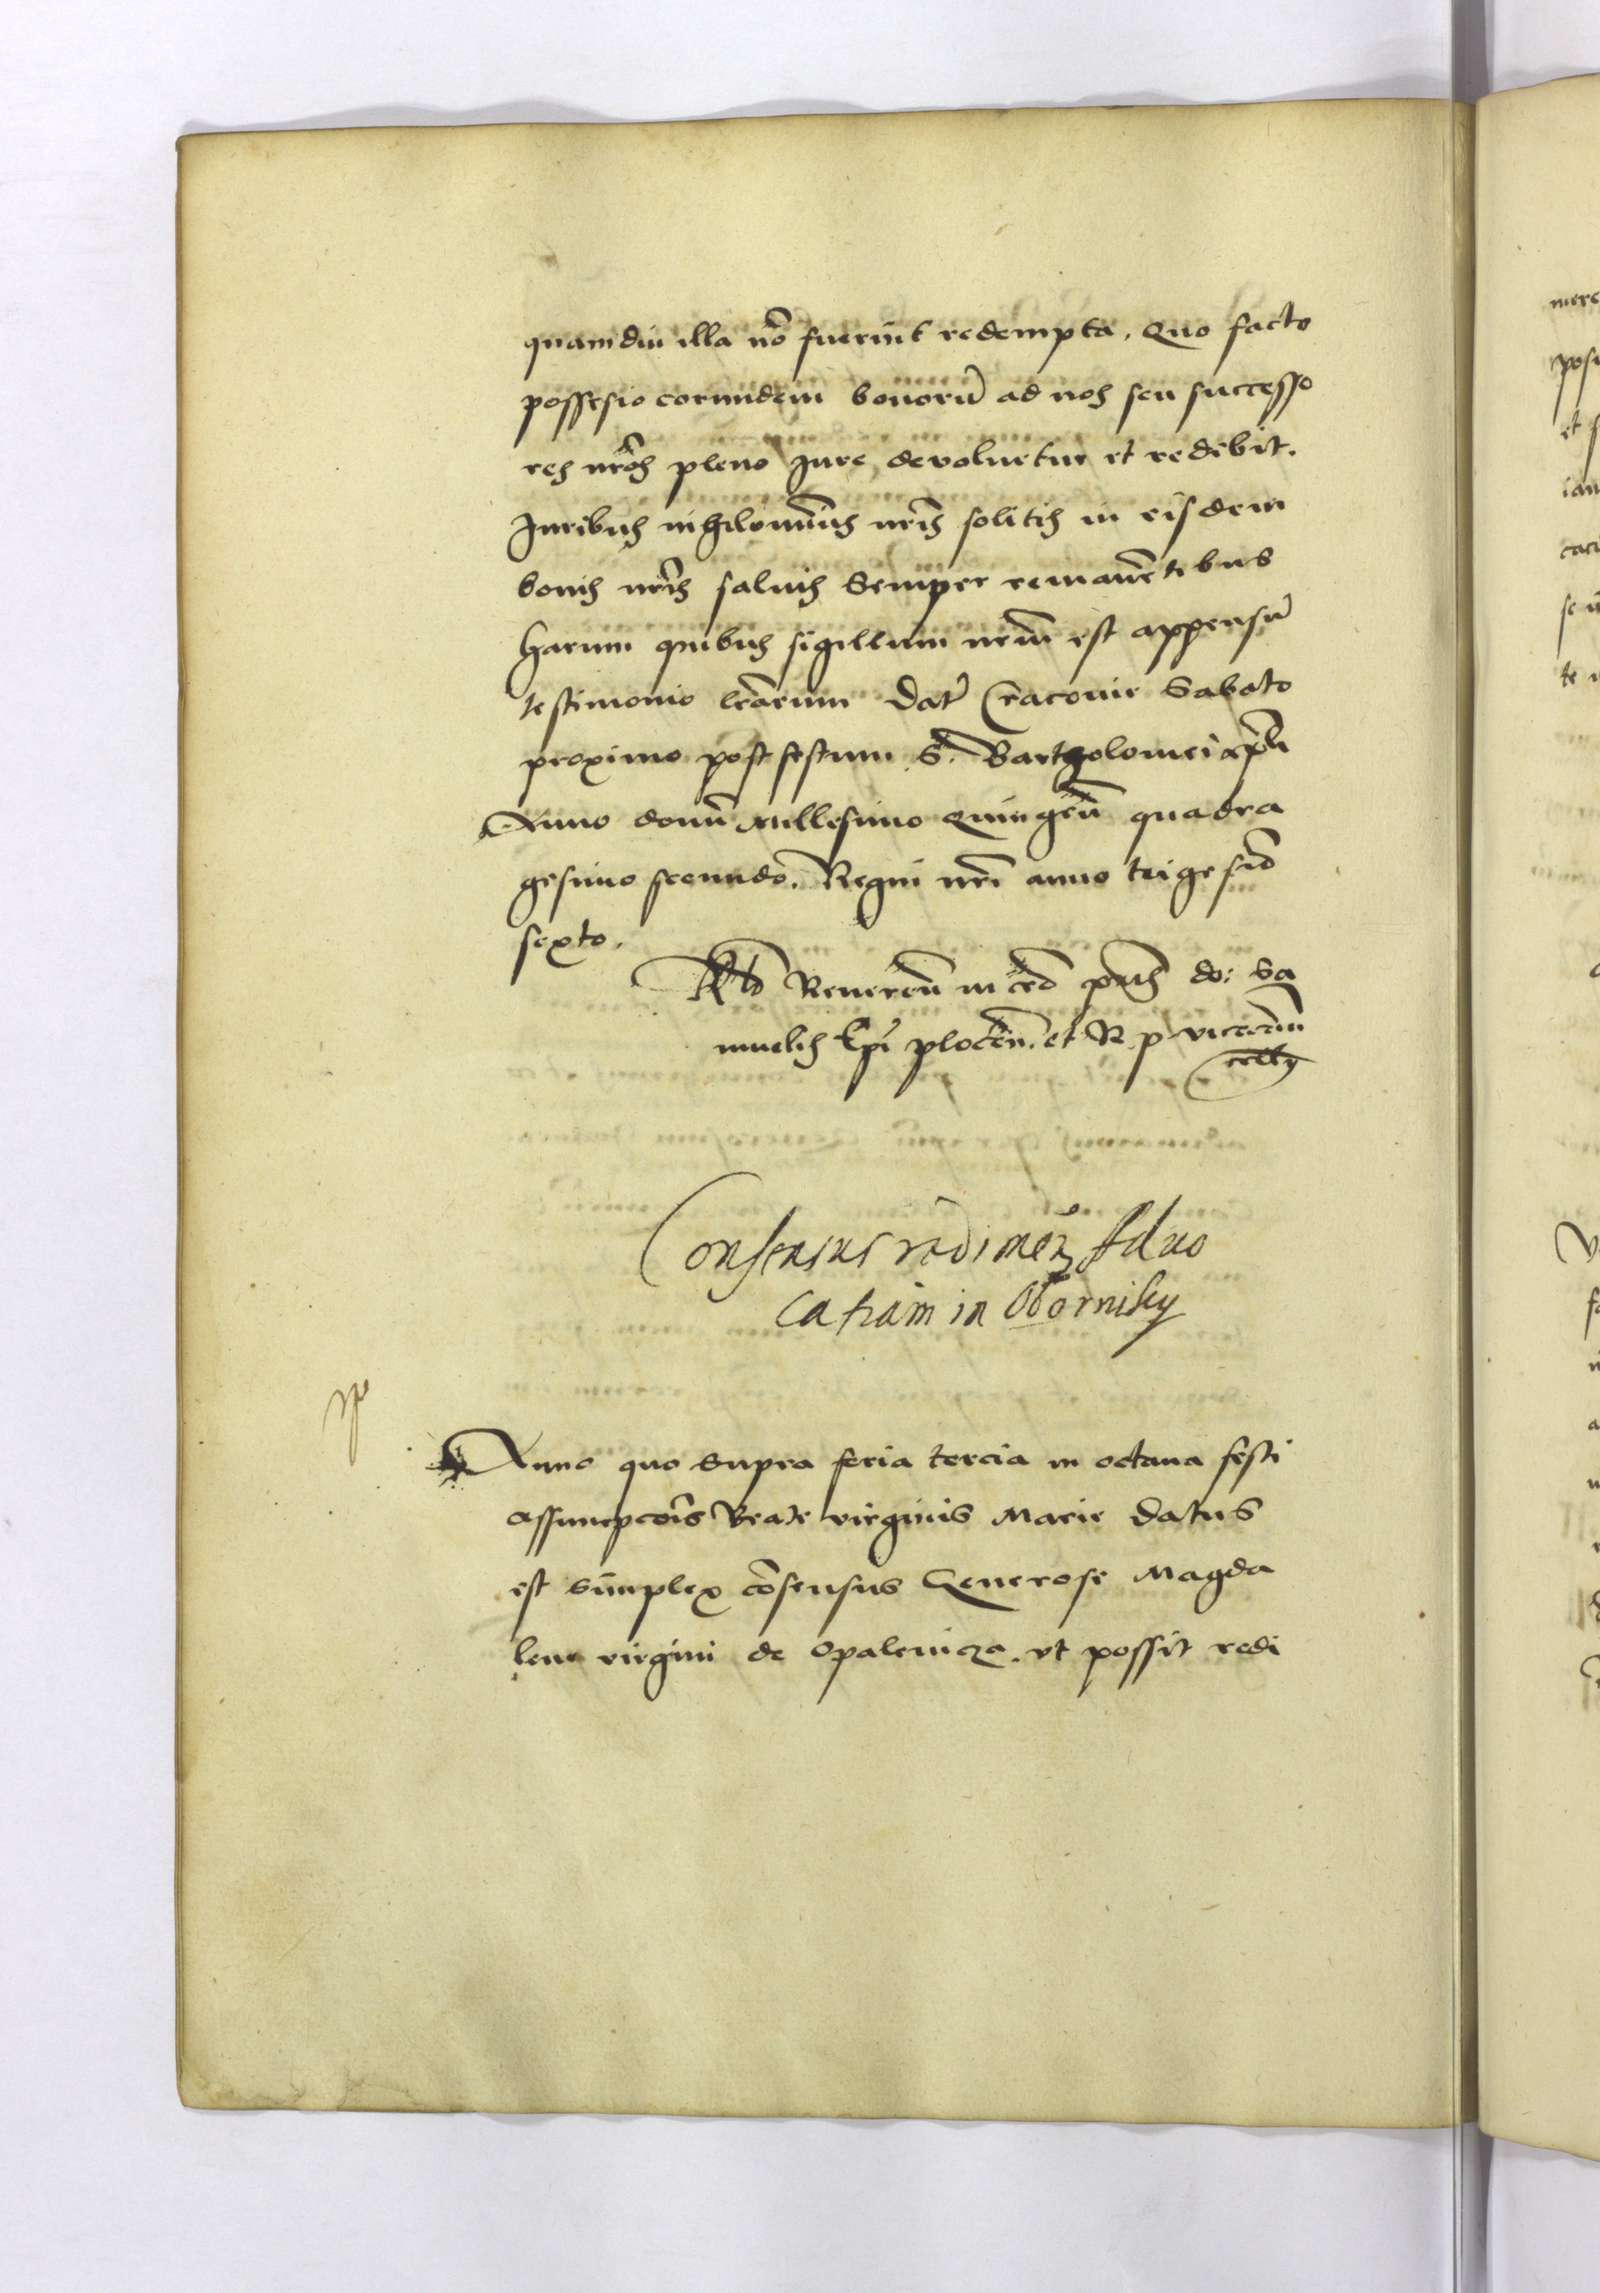 quamdiu illa nō fuerint redempta. Quo facto
possesio eorundem bonorū ad nos seu successo
res nr̄os pleno Iure devoluetur et redibit.
Iuribus nihilominus nr̄is solitis in eisdem
bonis nr̄is saluis Semper remanētibus
Harum quibus sigillum nrm̄ est appensū
testimonio lr̄arum Dat̄ Cracovie Sabato
proximo post festum S. Bartholomei apl̄i
Anno domī Millesimo Quingen̄ quadra
gesimo secundo. Regni nr̄i anno trigesimo
sexto.
Rlo Reveren̄ in cr̄o pr̄is do: Sa
muelis Ep̄i plocen̄. et R. p. vicecan̄
cellȳ
Consensus redimēn Aduo
catiam in Oborniky
Anno quo supra feria tercia in octava festi
Assumpcōis Beate virginis Marie Datus
est simplex cōsensus Generose Magda
lene virgini de Opalenicza. vt possit redi